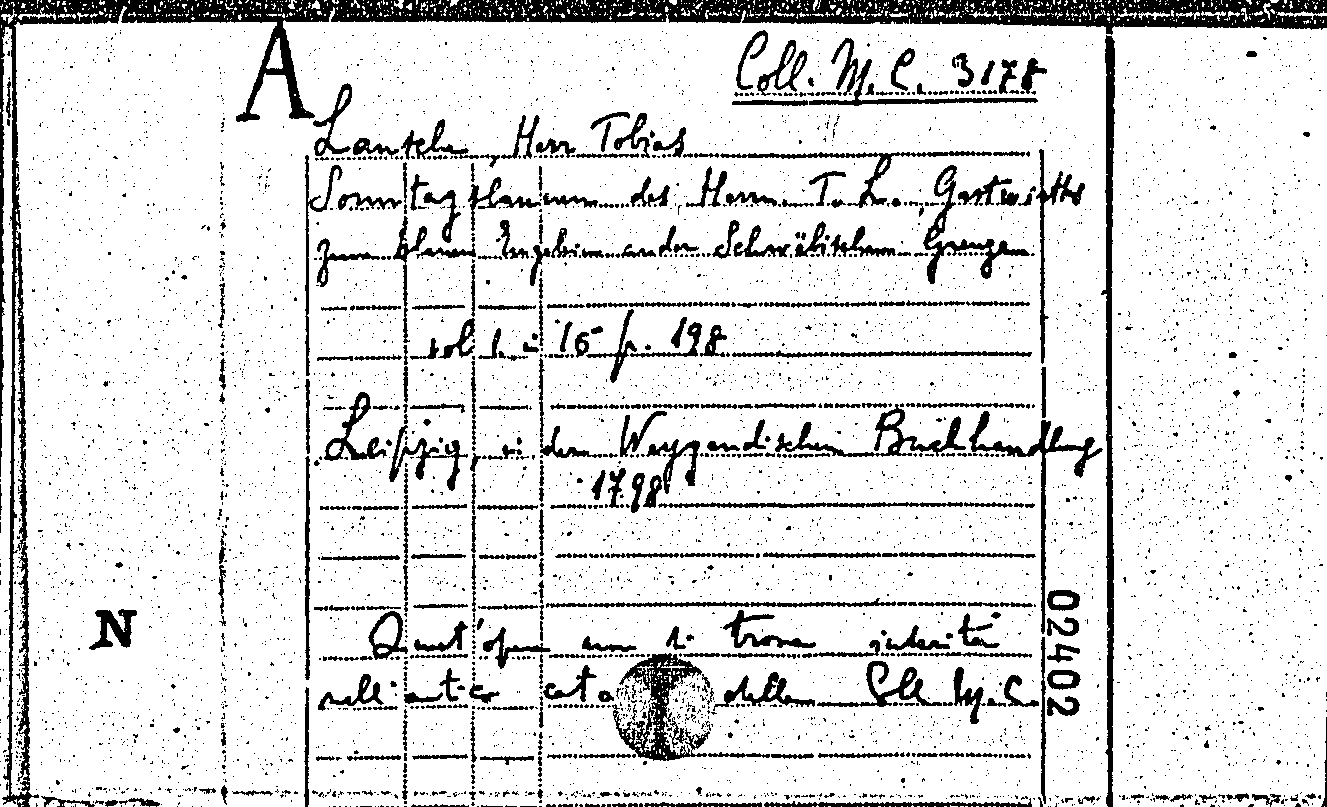 A
Coll. M. C. 3178
Herr Tobias
Sonntagslaunen des Herrn T. L., Gastwirths
zum blauen Engel an der Schwäbischen Grenze
vol 1. in 16° p. 198
Leipzig, in der Weygandischen Buchhandlung
1798
N
Quest'opera non si trova inserita
nell'antico cata della Coll M.C.
02402